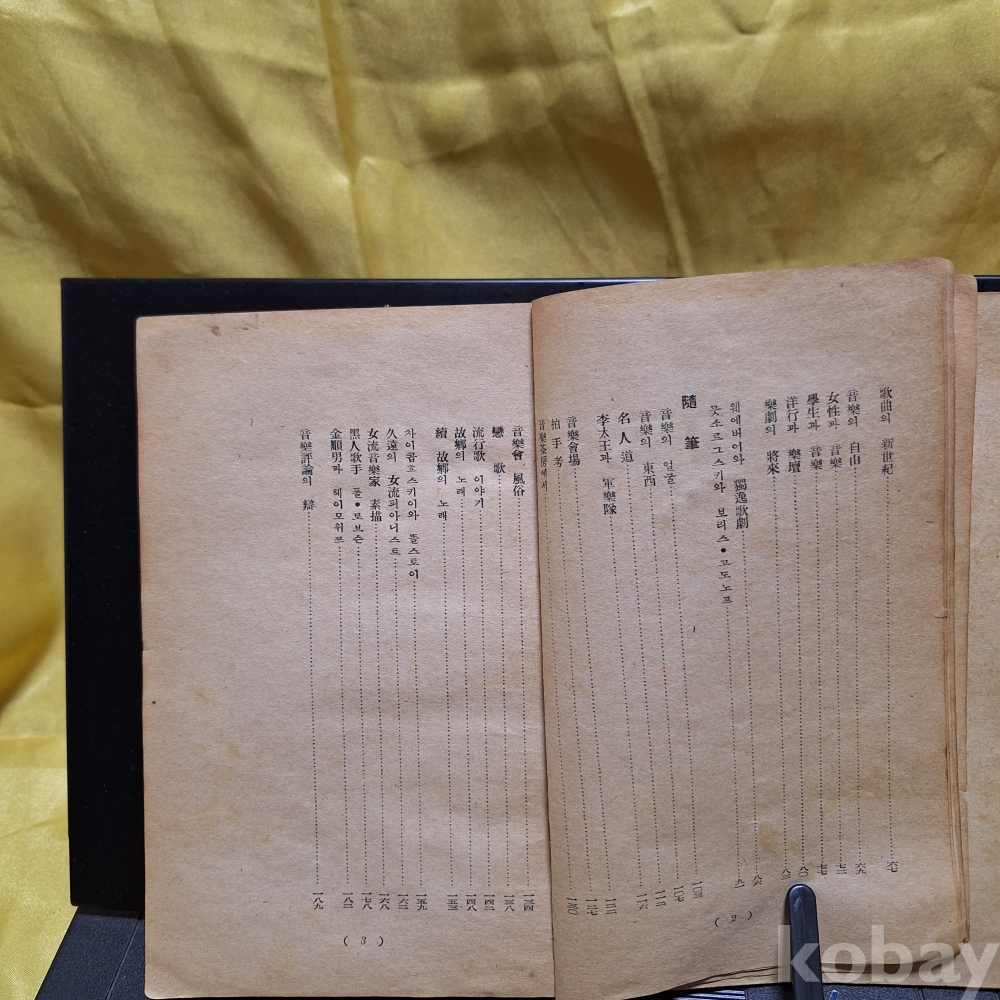 歌曲의 新世紀 六七
音樂의 自由 六九
女性과 音樂 七三
學生과 音樂 七七
洋行과 樂壇 八〇
樂劇의 將來 八三
웨에버어와 獨逸歌劇 八六
뭇소르그스키와 보리스•고도노프 九一
隨筆
音樂의 얼굴 一〇三
音樂의 東西 一〇七
名人道 一一二
李太王과 軍樂隊 一一六
音樂會場 一二二
拍手考 一二七
音樂茶房에서 一三〇
(2)
音樂會 風俗 一三四
戀歌 一三八
流行歌 이야기 一四三
故鄕의 노래 一四八
續 故鄕의 노래 一五三
차이콥호스키이와 똘스토이 一五九
久遠의 女流피아니스트 一六三
女流音樂家 素描 一六八
黑人歌手 폴•로브슨 一七八
金順男과 헤이모위쯔 一八二
音樂評論의 辯 一八九
(3)
kobay